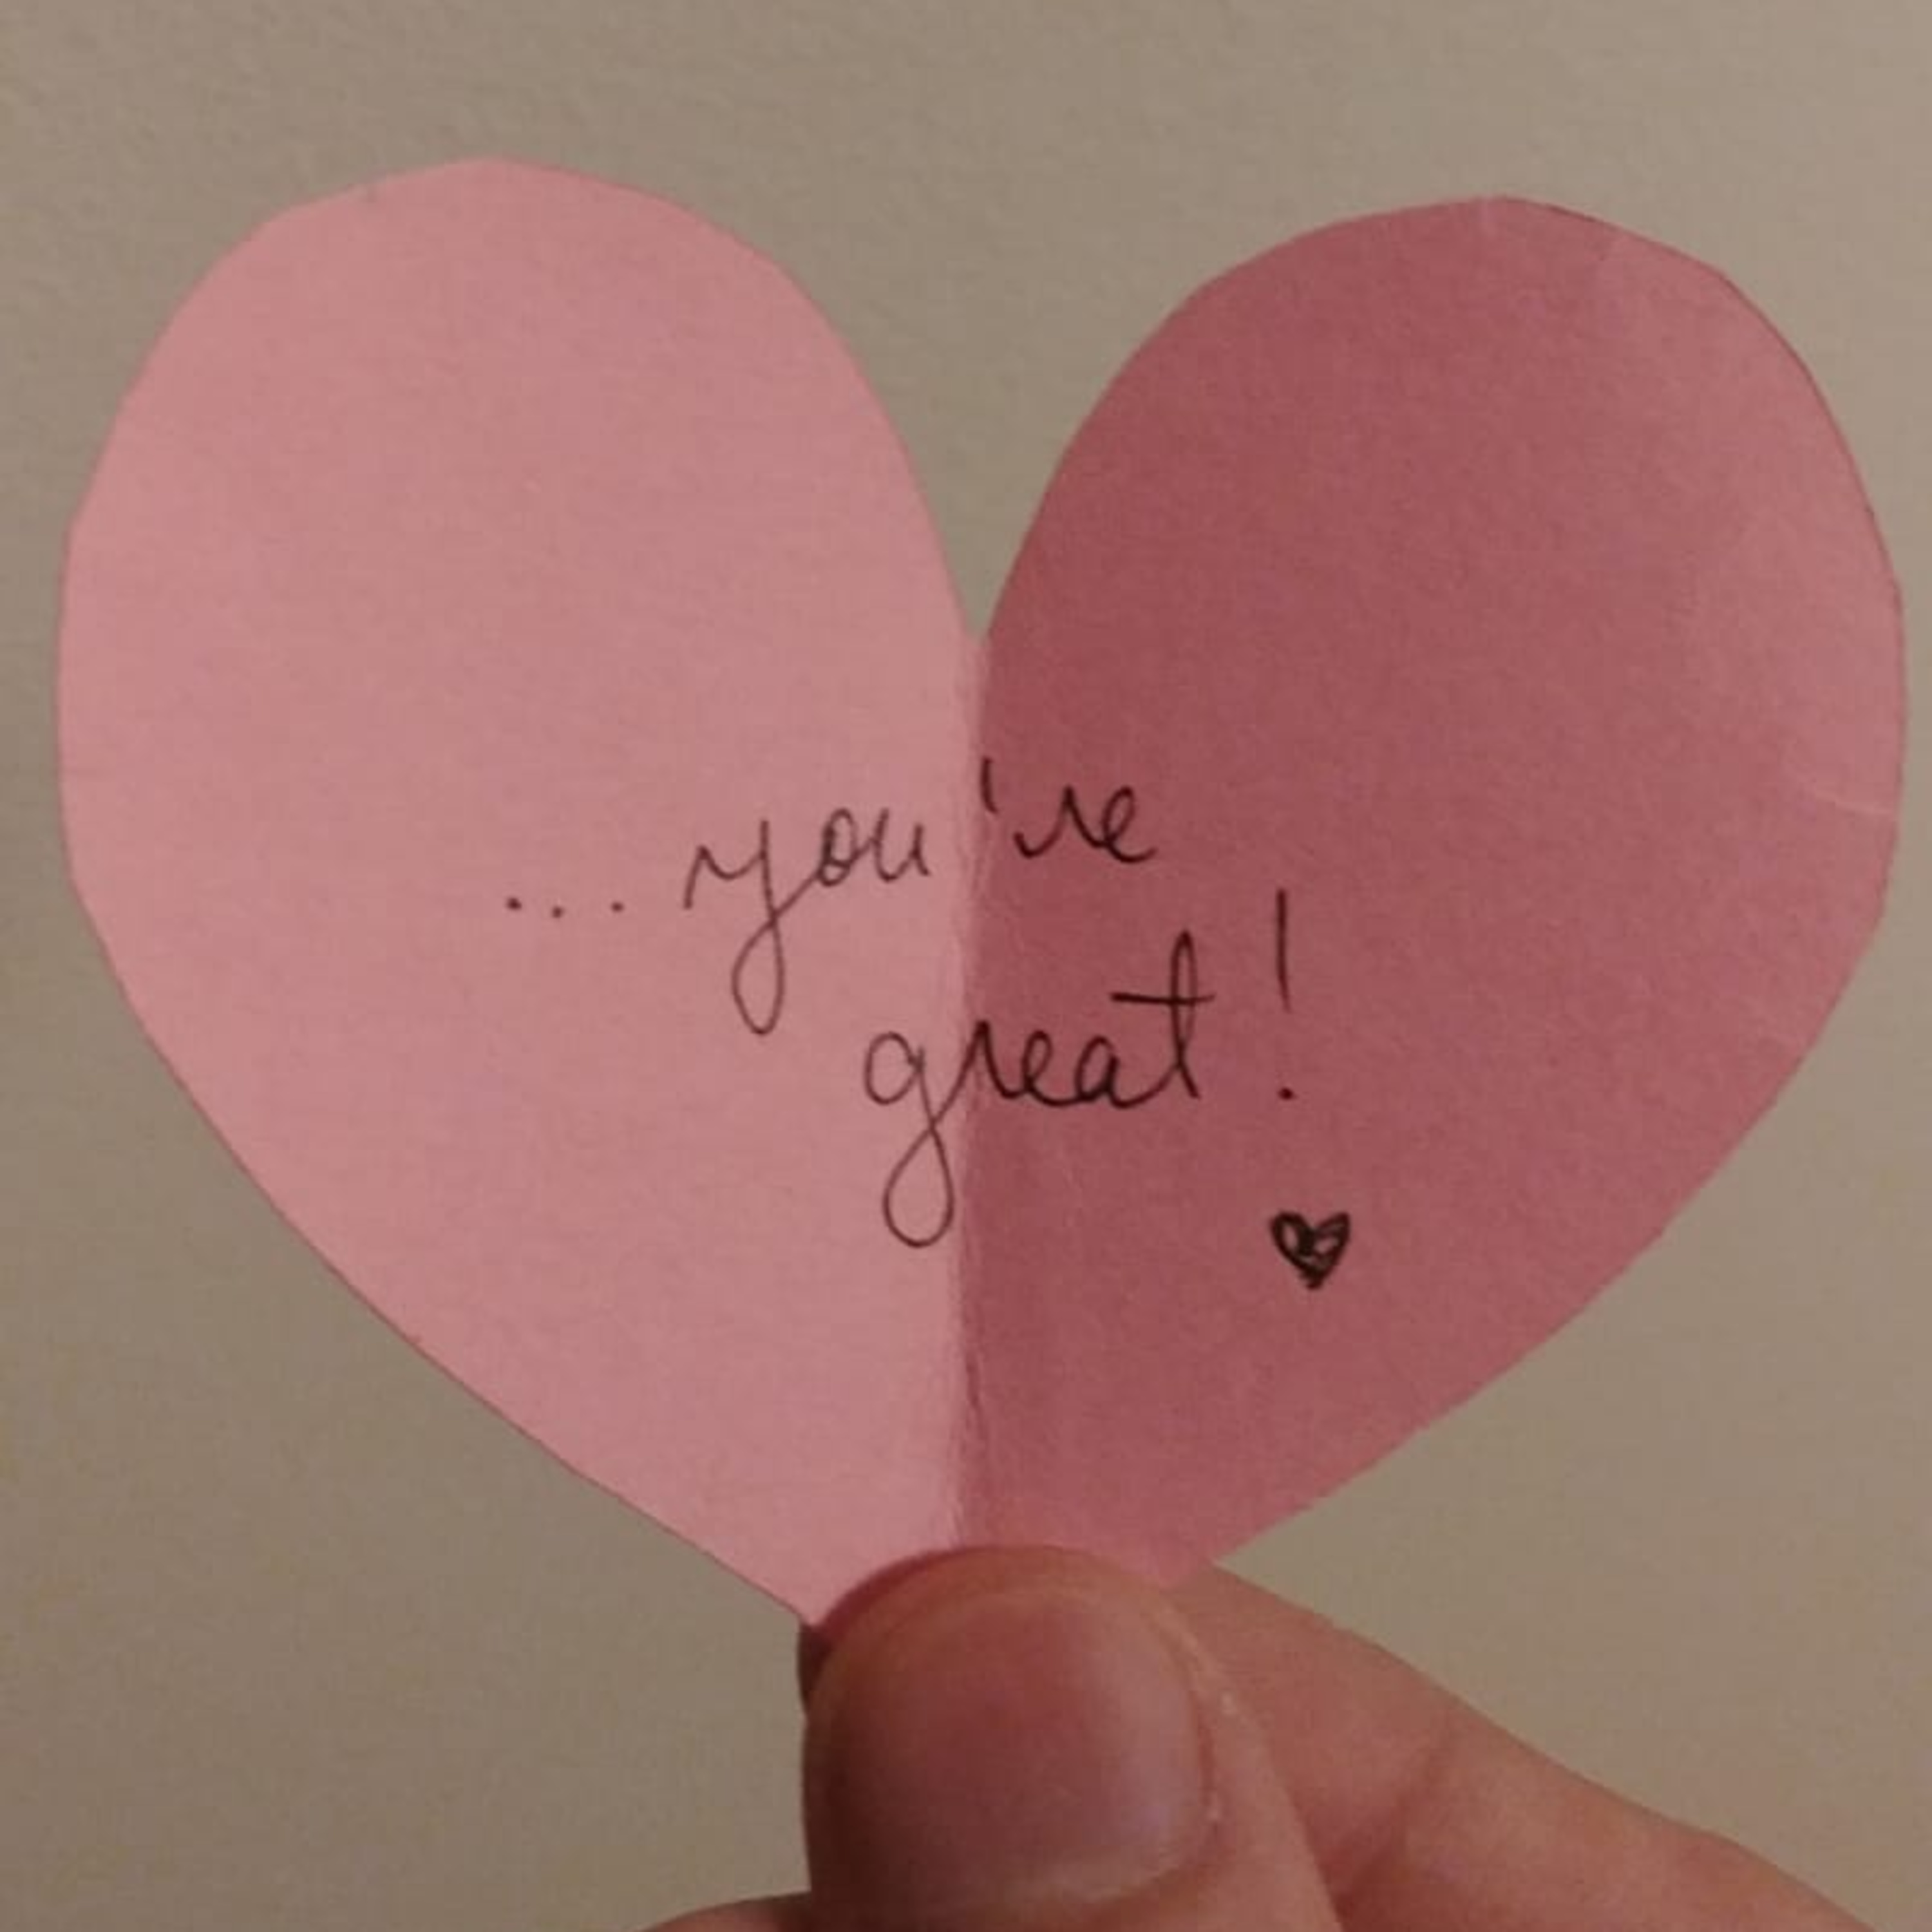 ...you're
great!